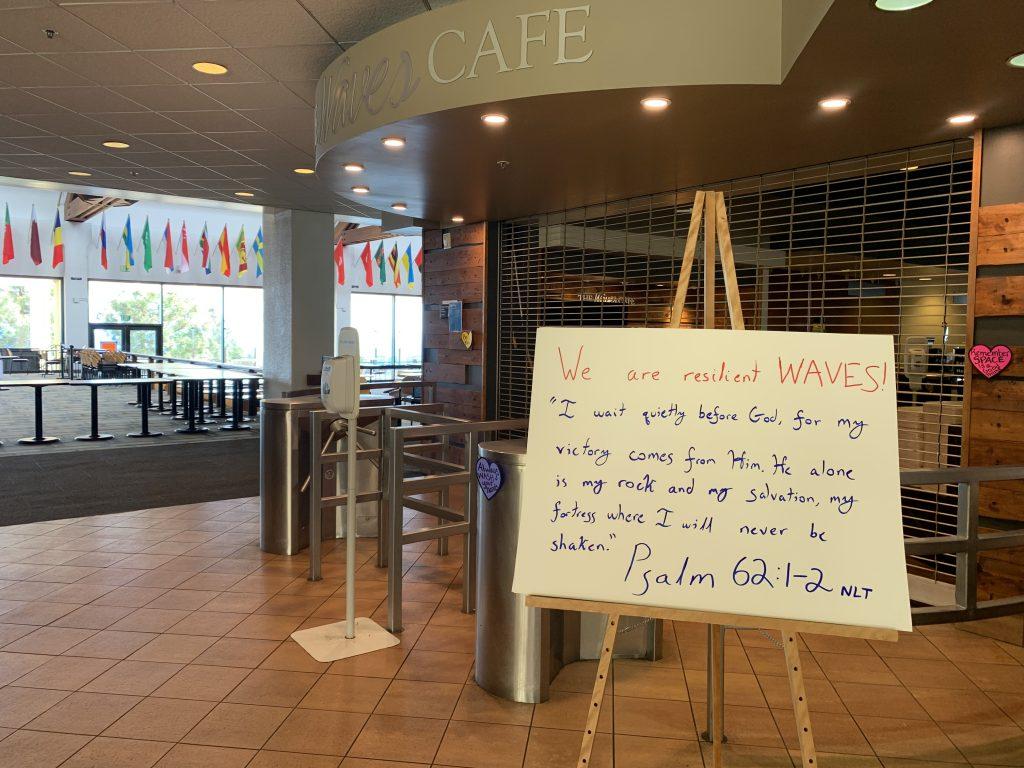 Waves CAFE
We are resilient WAVES!
"I wait quietly before God, for my
victory comes from Him. He alone
is my rock and my salvation, my
fortress where I will never be
shaken."
Psalm 62:1-2 NLT
Remember
SPACE
Always
WASH